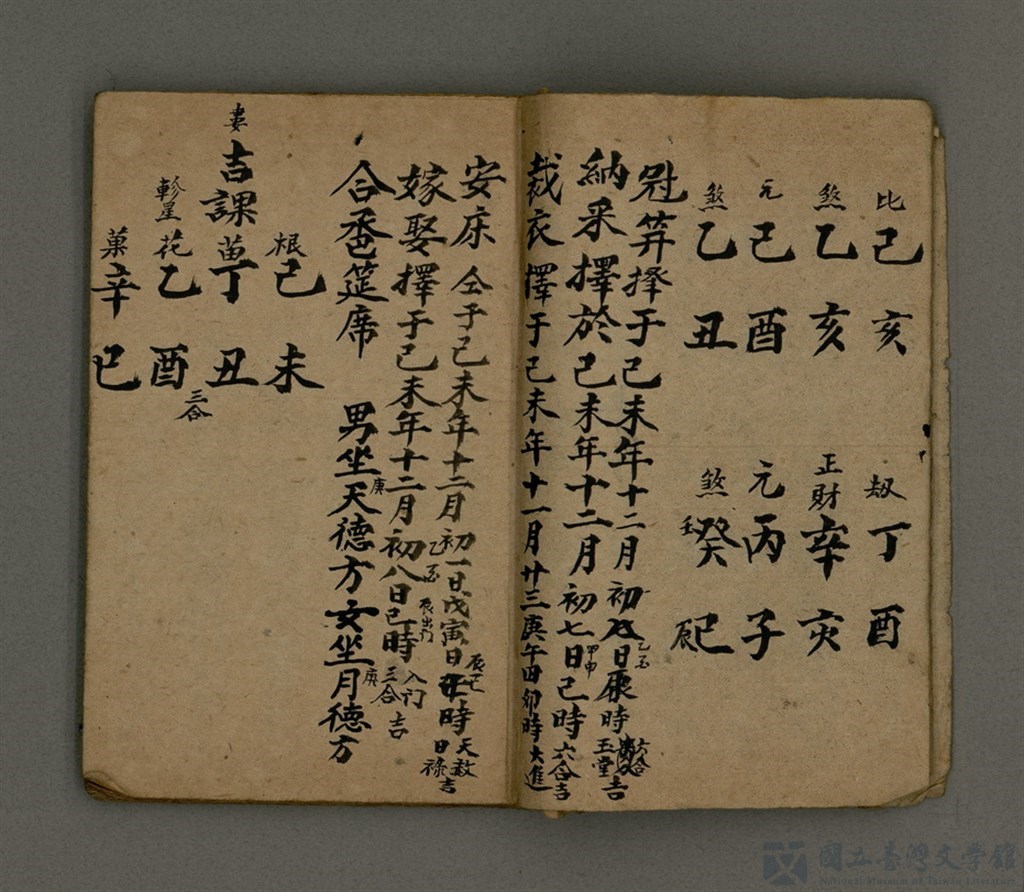 比 己亥
煞 乙亥
元 己酉
煞 乙丑
丁酉
正財 辛亥
元 丙子
煞 癸巳
冠笄擇于己未年十二月初八日乙酉辰時六合玉堂吉
納采擇於己未年十二月初七日甲申巳時六合吉
裁衣擇于己未年十一月廿三庚午四卯時大進
安床仝于己未年十二月初一日戊寅日時天赦日祿吉
嫁娶擇于己未年十二月初八日乙酉巳時辰出门入门三合吉
合卺筵席 男坐天德方庚女坐月德方庚
根 己未
婁吉課 苗 丁丑
軫星 花 乙酉 三合
菓 辛巳
國立臺灣文學館
National Museum of Taiwan Literature